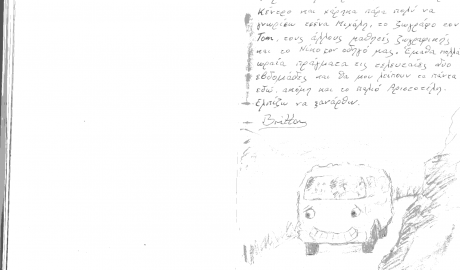 Κέντρο και χάρηκα πάρα πολύ να
γνωρίσω εσένα Μιχάλη, το ζωγράφο τον
Tom, τους άλλους μαθητές ζωγραφικής
και το Νίκο τον οδηγό μας. Έμαθα πολλά
ωραία πράγματα τις τελευταίες δύο
εβδομάδες και θα μου λείπουν τα πάντα
εδώ, ακόμη και το παλιό Αριστοτέλη.
Ελπίζω να ξανάρθω.